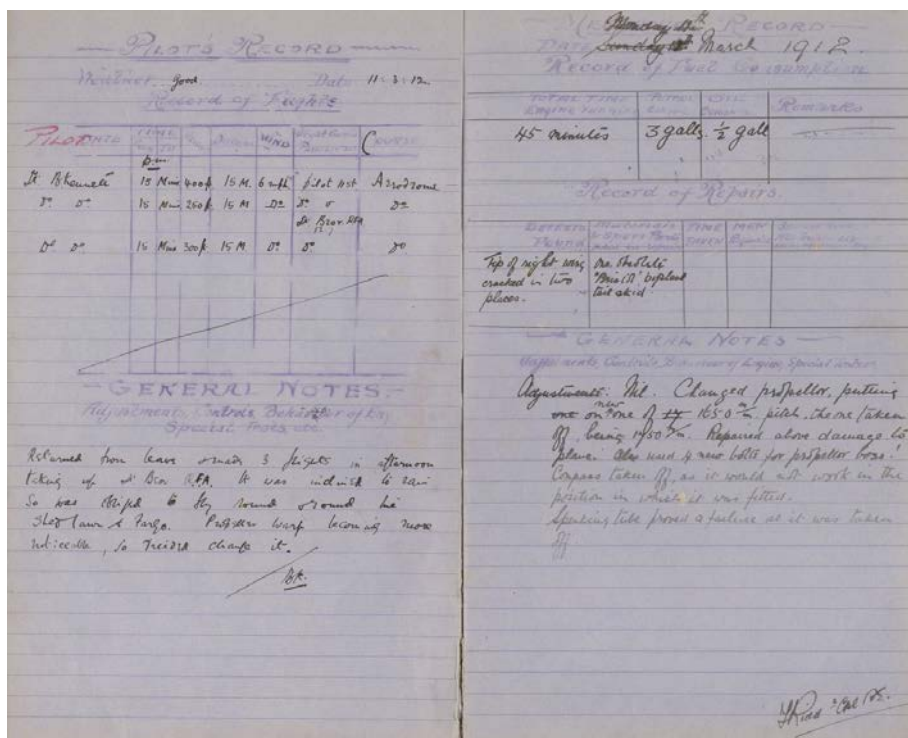 PILOT'S RECORD
Weather good Date 11:3:12.
Record of Flights
PILOT TIME WIND COURSE
p.m.
Lt 15 Mins 400f. 15 M. 6 mph pilot Aerodrome
Do Do 15 Mins 250f. 15 M Do Do Do
Do Do 15 Mins 300f. 15 M. Do Do Do
GENERAL NOTES.
Adjustments, Controls, Behaviour of Eng,
Special Tests, etc.
Returned from leave made 3 flights in afternoon
taking up Lt RFA. It was inclined to rain
so was obliged to fly round & round the
shed lawn & Fargo. Propellers warp becoming more
noticeable, so change it.
BK.
RECORD
Monday
DATE Sunday March 1912.
Record of Fuel Consumption
TOTAL TIME PETROL OIL Remarks
ENGINE RUNNING
45 minutes 3 galls. ½ gall
Record of Repairs.
DEFECTS TIME MEN
FOUND TAKEN
Tip of right wing one
cracked in two "Bristol" biplane
places. tail skid
GENERAL NOTES
Adjustments, Controls, Behaviour of Engine, Special
Adjustments: Nil. Changed propellor, putting
new
on one of 1650 m/m. pitch, the one taken
off, being m/m. Repaired above damage to
plane. Also used 4 new bolts for propellor boss.
Compass taken off, as it would not work in the
position in which it was fitted.
Speaking tube proved a failure so it was taken
off